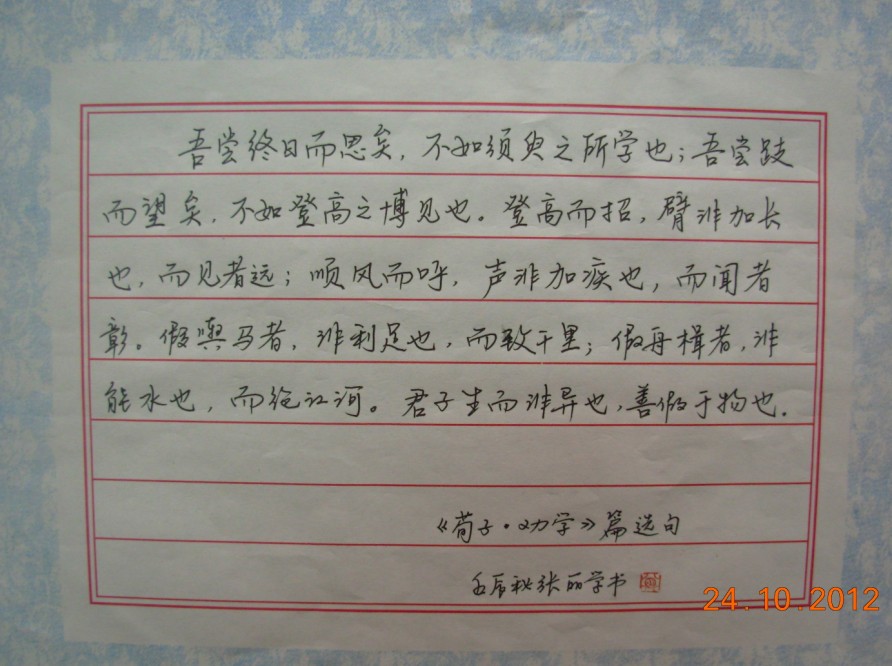 吾尝终日而思矣，不如须臾之所学也；吾尝跂
而望矣，不如登高之博见也。登高而招，臂非加长
也，而见者远；顺风而呼，声非加疾也，而闻者
彰。假舆马者，非利足也，而致千里；假舟楫者，非
能水也，而绝江河。君子生而非异也，善假于物也.
《荀子·劝学》篇选句
壬辰秋张丽学书
24.10.2012